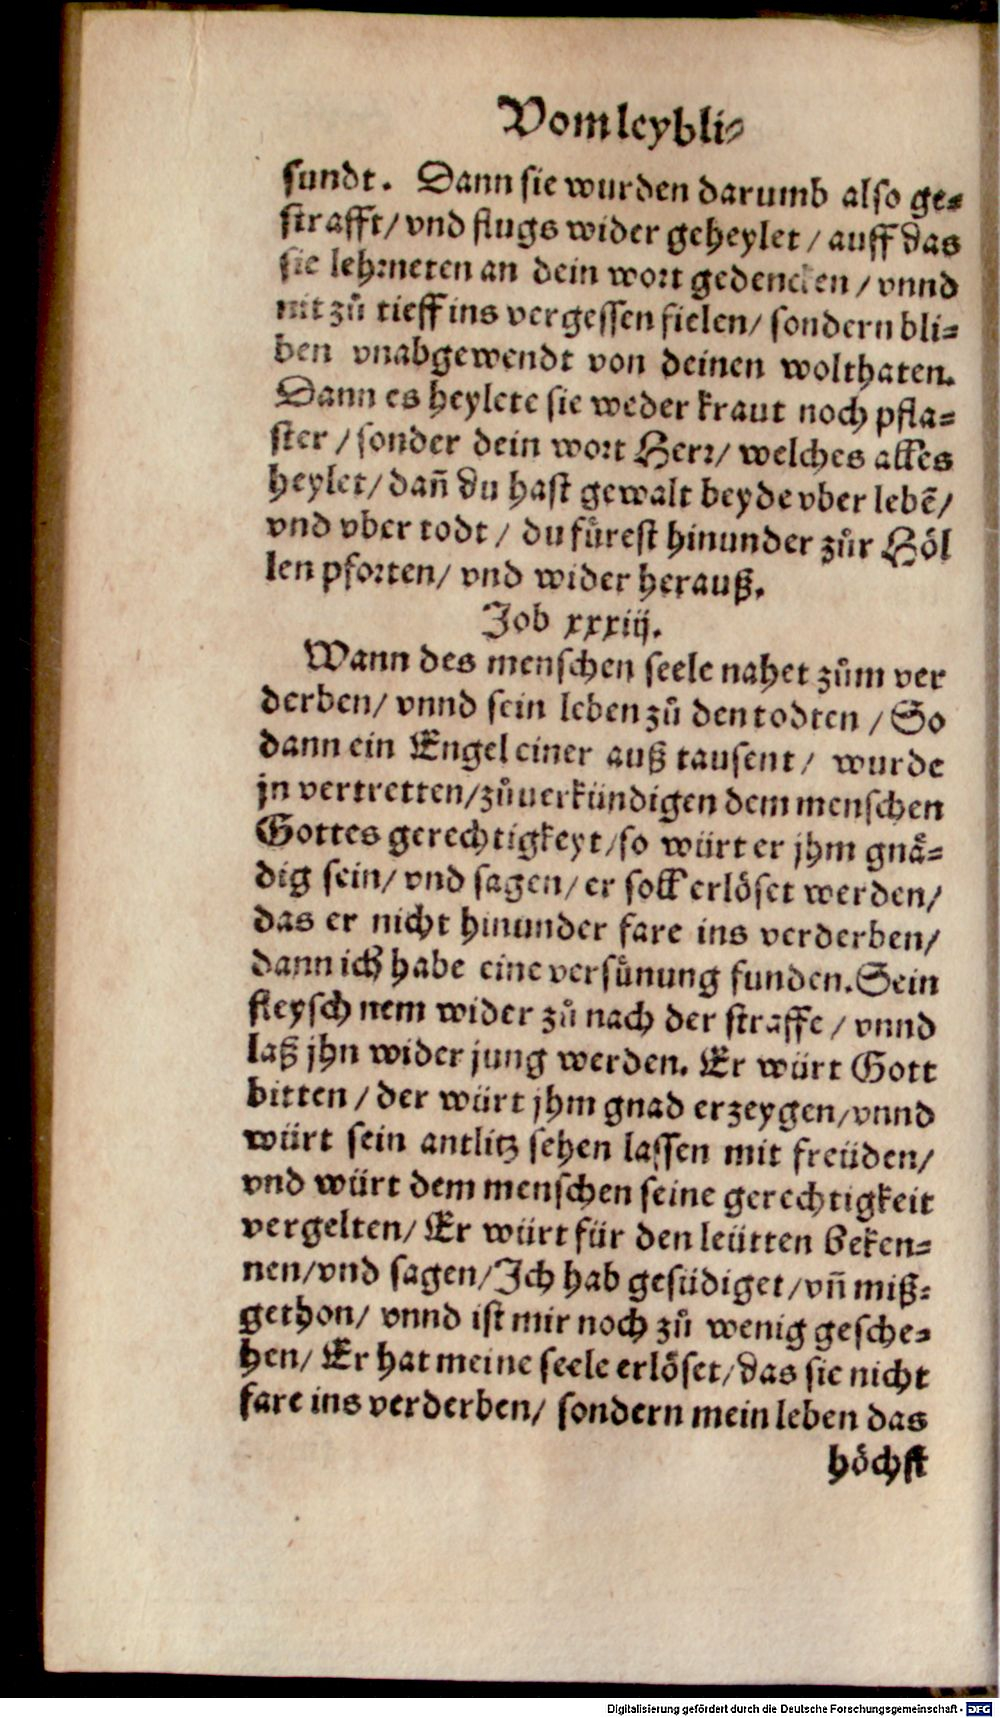 Vom leybli⸗
sundt. Dann sie wurden darumb also ge⸗
strafft/ vnd flugs wider geheylet / auff das
sie lehrneten an dein wort gedencken / vnnd
nit zů tieff ins vergessen fielen/ sondern bli⸗
ben vnabgewendt von deinen wolthaten.
Dann es heylete sie weder kraut noch pfla⸗
ster / sonder dein wort Herr/ welches alles
heylet/ dañ du hast gewalt beyde vber lebē/
vnd vber todt / du fůrest hinunder zůr Höl
len pforten/ vnd wider herauß.
Job xxxiij.
Wann des menschen seele nahet zům ver
derben/ vnnd sein leben zů den todten / So
dann ein Engel einer auß tausent/ wurde
jn vertretten/ zůuerkündigen dem menschen
Gottes gerechtigkeyt/ so würt er jhm gnä⸗
dig sein/ vnd sagen/ er soll erlöset werden/
das er nicht hinunder fare ins verderben/
dann ich habe eine versůnung funden. Sein
fleysch nem wider zů nach der straffe / vnnd
laß jhn wider jung werden. Er würt Gott
bitten / der würt jhm gnad erzeygen/ vnnd
würt sein antlitz sehen lassen mit freüden/
vnd würt dem menschen seine gerechtigkeit
vergelten/ Er würt für den leütten beken⸗
nen/ vnd sagen/ Ich hab gesüdiget/ vñ miß⸗
gethon/ vnnd ist mir noch zů wenig gesche⸗
hen/ Er hat meine seele erlöset/ das sie nicht
fare ins verderben/ sondern mein leben das
höchst
Digitalisierung gefördert durch die Deutsche Forschungsgemeinschaft - DFG